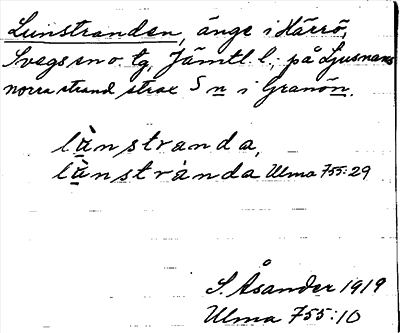 Lunstranden, änge i Härrö,
Svegs sn o. tg, Jämtl. l.; på Ljusnans
norra strand strax S n i Granön.
lùnstranda,
lùnstrànda Ulma 755:29
S. Åsander 1919
Ulma 755:10